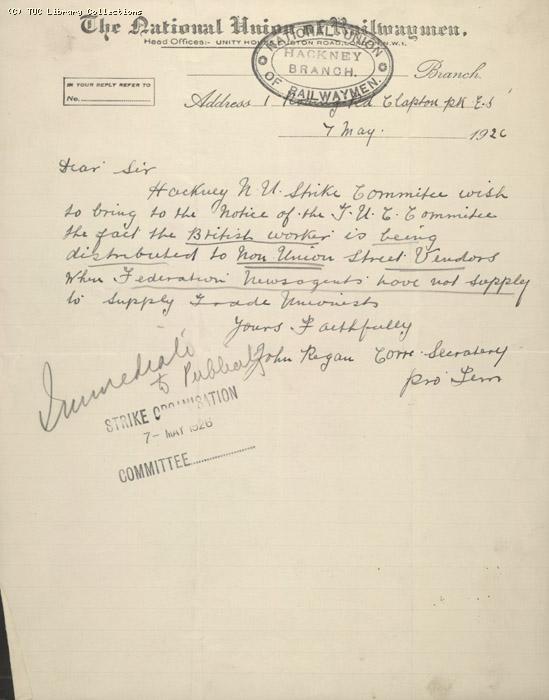 (C) TUC Library Collections
The National Union of Railwaymen.
Head Offices:- UNITY HOUSE, EUSTON ROAD, LONDON, N.W.1.
NATIONAL UNION
HACKNEY
BRANCH.
OF RAILWAYMEN.
Branch.
IN YOUR REPLY REFER TO
No.
Address 1 Rd Clapton pk E.5
7 May. 1926
Dear Sir
Hackney N.U. Strike Committee wish
to bring to the Notice of the T.U.C. Committee
the fact the British worker is being
distributed to Non Union Street Vendors
when Federation Newsagents have not supply
to supply Trade Unionists
Yours Faithfully
John Regan Corre. Secratery
pro Tem
Immediate
to Publicity
STRIKE ORGANISATION
7- MAY 1926
COMMITTEE